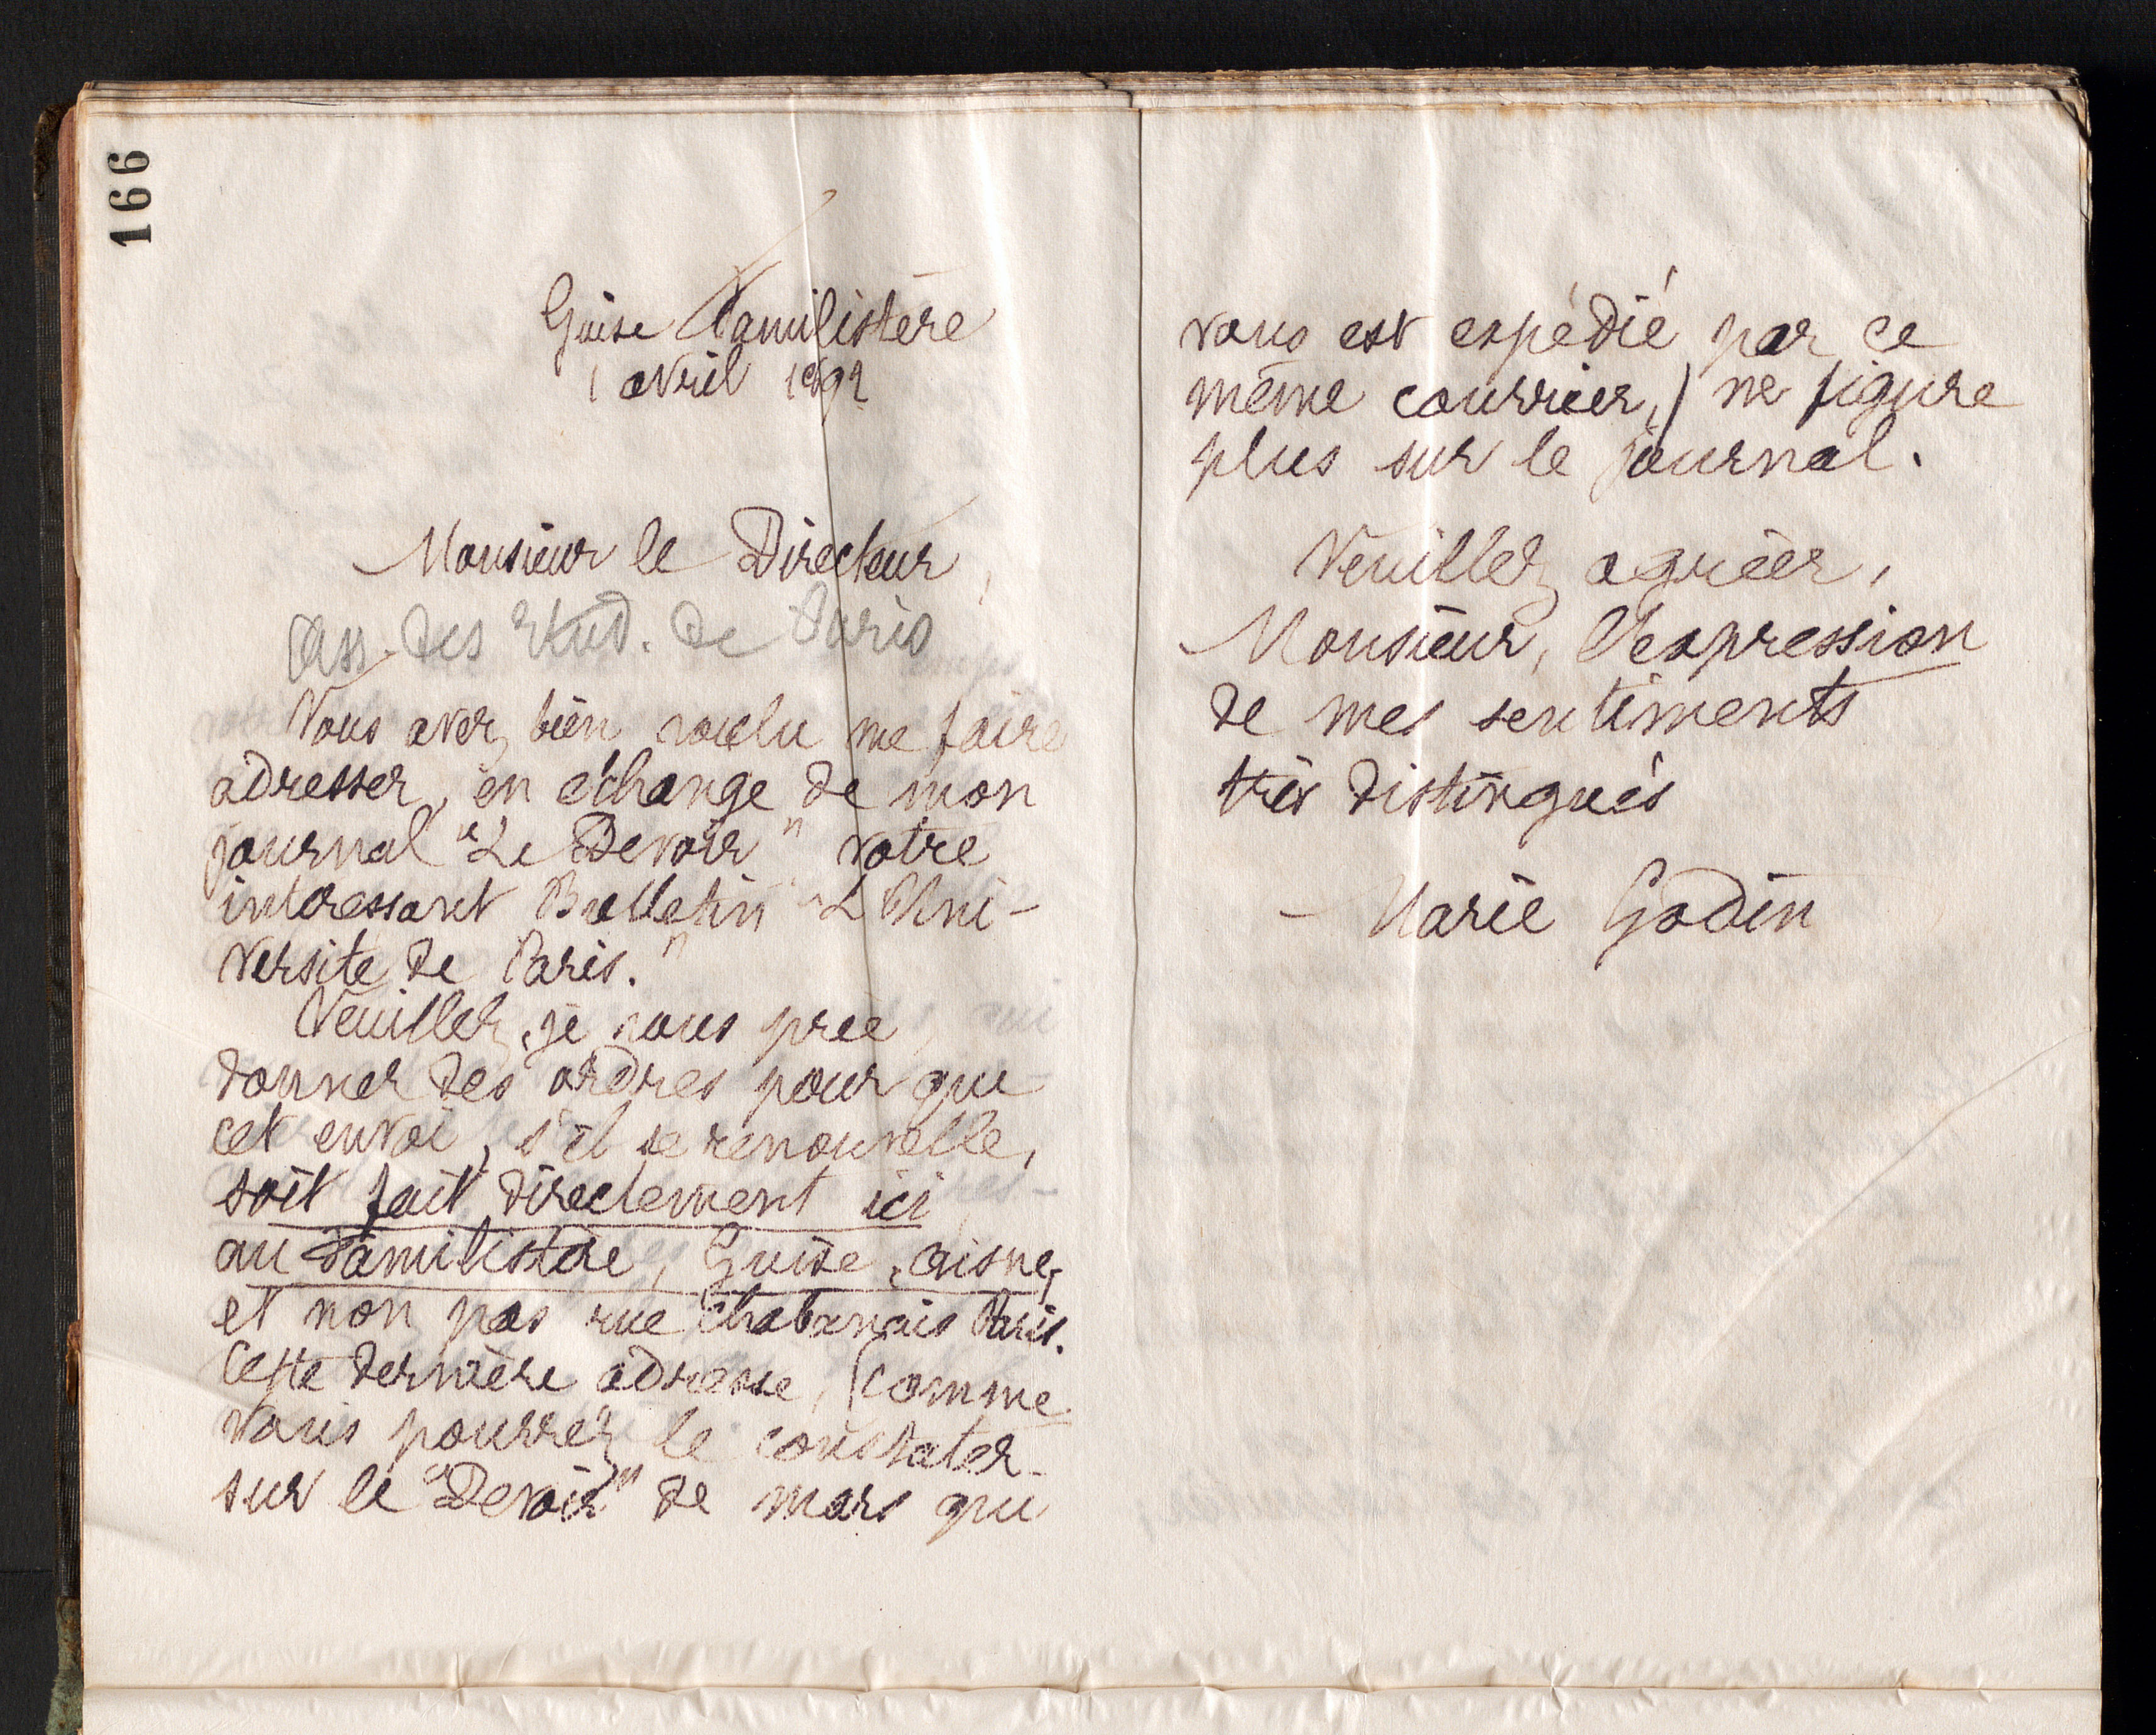 166
Guise Familistère
1 avril 1892
Monsieur le Directeur,
Ass. des Etud. de Paris
Vous avez bien voulu me faire
adresser, en échange de mon
journal "Le Devoir" votre
intéressant Bulletin "L'Uni-
versité de Paris."
Veuillez, je vous prie,
donner des ordres pour que
cet envoi, s'il se renouvelle,
soit fait directement ici
au Familistère, Guise, Aisne,
et non pas rue Chabanais Paris.
Cette dernière adresse, (comme
vous pourrez le constater
sur le "Devoir" de mars qui
vous est expédié par ce
même courrier,) ne figure
plus sur le journal.
Veuillez agréer,
Monsieur, l'expression
de mes sentiments
très distingués
Marie Godin